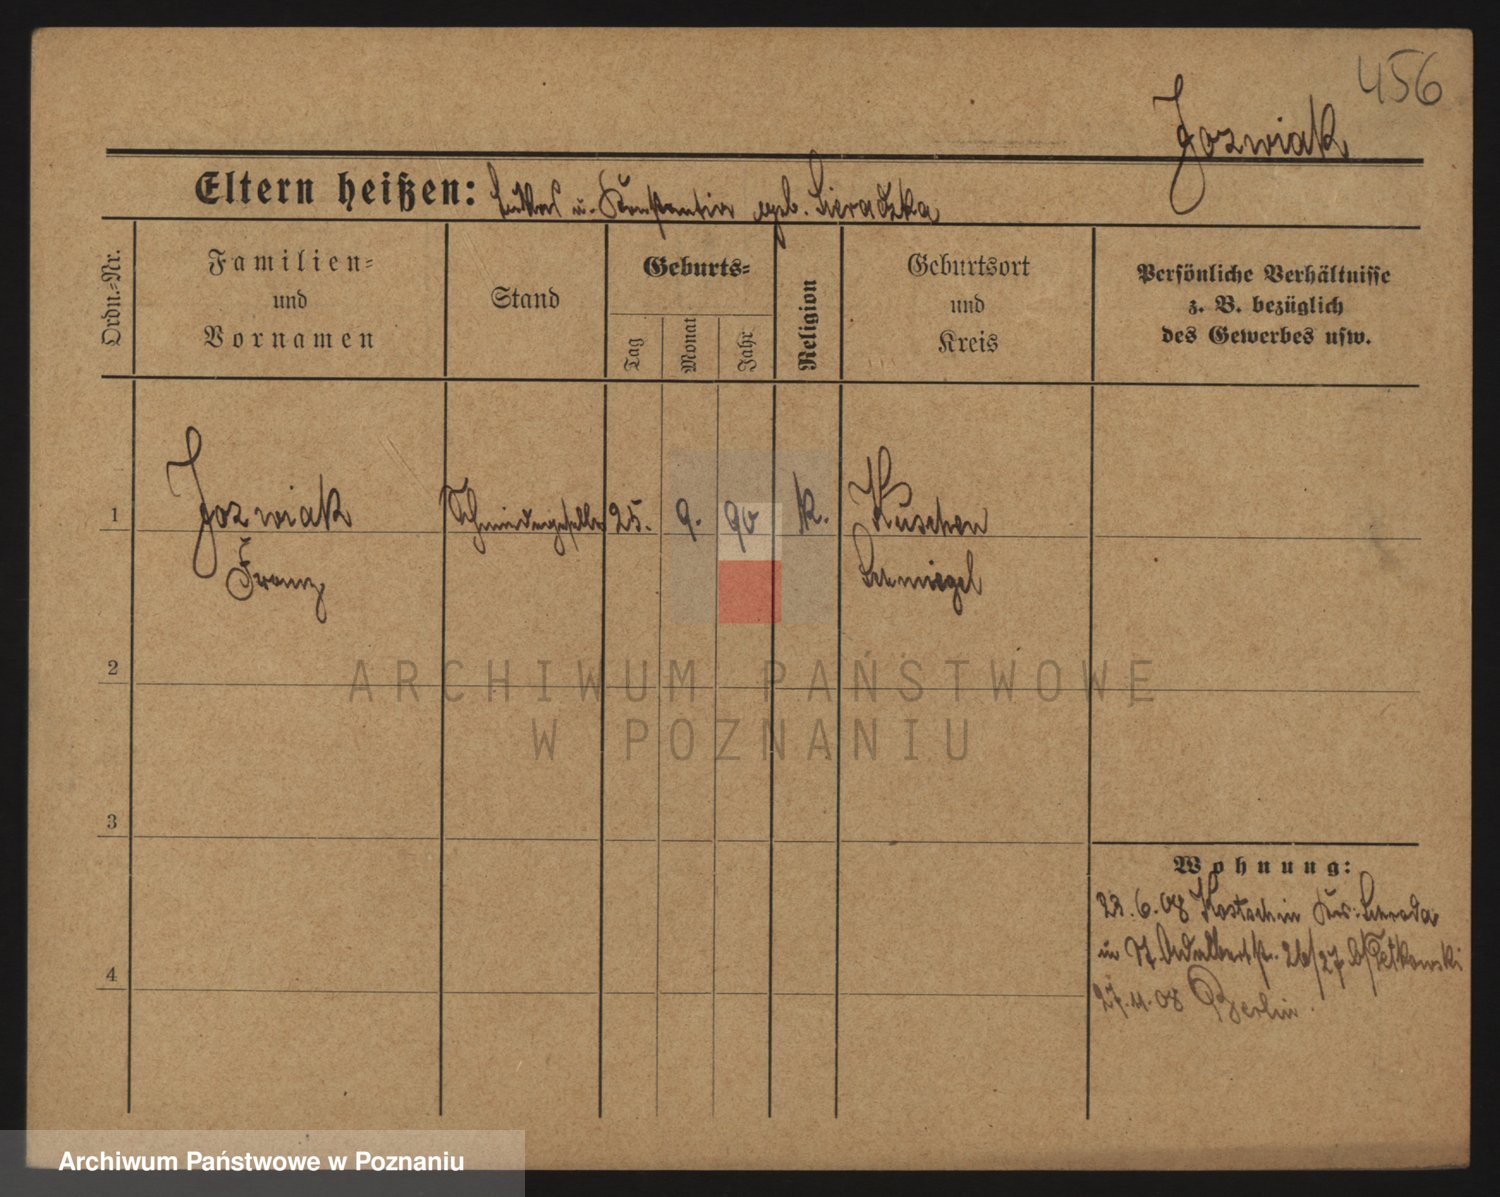 456
Jozwiak
Eltern heißen: u. Konstantia geb. Sieradzka
Ordn.-Nr.
Familien-
und
Vornamen
Stand
Geburts-
Tag
Monat
Jahr
Religion
Geburtsort
und
Kreis
Persönliche Verhältnisse
z. B. bezüglich
des Gewerbes usw.
1
Jozwiak
Franz
25.
9.
90
k.
Kuschen
Schmiegel
2
3
4
Wohnung:
23.6.08 Kostschin Schroda
St. Adalbertstr. 26/27 b/Petkowski
27.11.08 Berlin.
ARCHIWUM PAŃSTWOWE
W POZNANIU
Archiwum Państwowe w Poznaniu